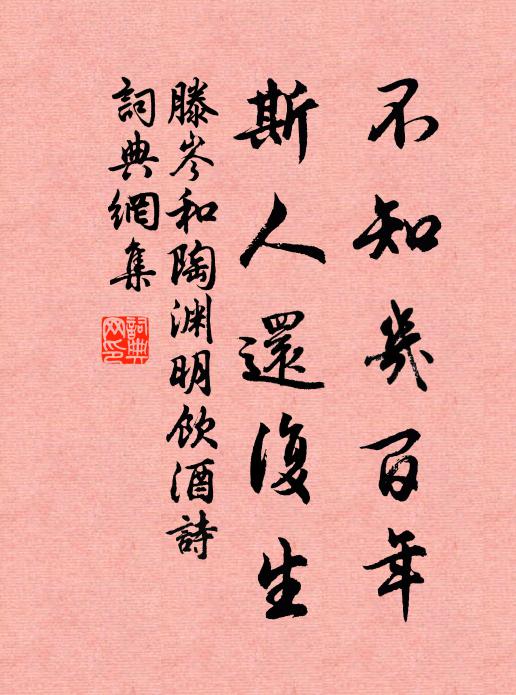 不知幾百年
斯人還復生
滕岑和陶渊明飲酒詩
詞典網集
詞典网印